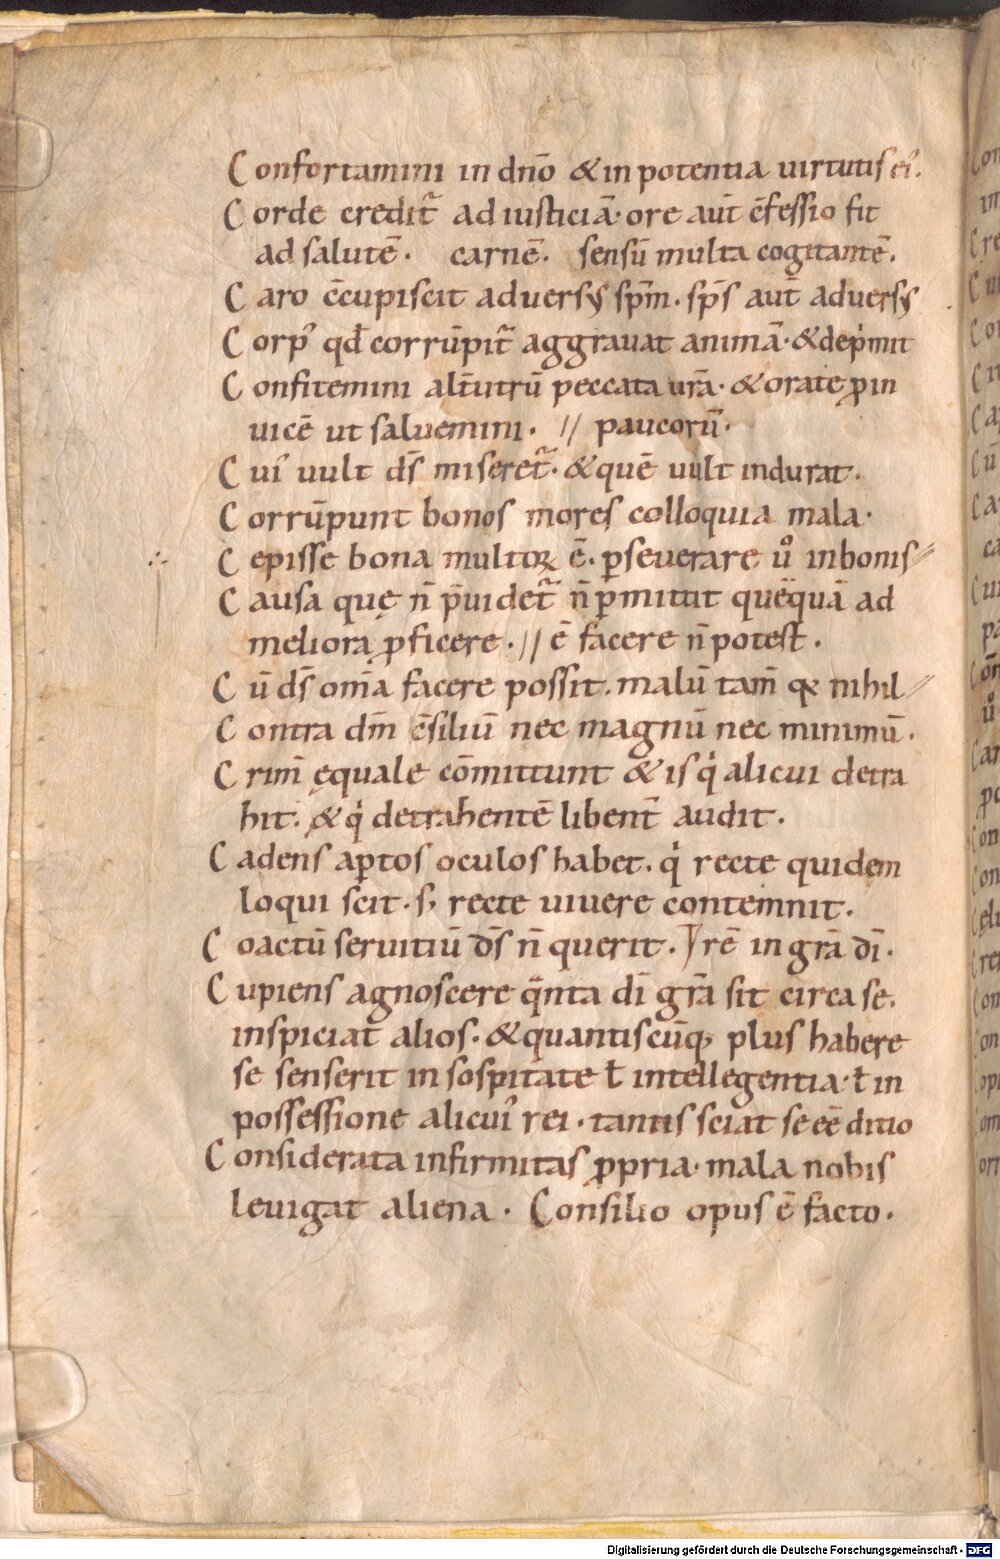 Confortamini in dn̄o & in potentia uirtutis ei᾽.
Corde credit᷑ ad iusticiā· ore aut̄ c̄fessio fit
ad salutē· carnē. sensū multa cogitantē.
Caro c̄cupiscit aduersꝰ sp̄m. sp̄s aut̄ aduersꝰ
Corp᾽ qđ corrūpit᷑ aggrauat animā·& dep̍mit
Confitemini alt̄utrū peccata ur̄a· & orate ꝓ in
uicē ut saluemini· // paucorū·
Cui᾽ uult ds̄ miseret᷑· & quē uult indurat·
Corrūpunt bonos mores colloquia mala·
Cepisse bona multoꝝ ē· ꝑseuerare uͦ in bonis //
Causa quę n̄ p̄uidet᷑ n̄ ꝑmittit quēquā ad
meliora ꝓficere· // ē facere n̄ potest·
Cū ds̄ om̄a facere possit. malū tam̄ qꝫ nihil //
Contra dm̄ c̄siliū nec magnū nec minimū·
Crim̄ ęquale cōmittunt & is q̍ alicui detra
hit. & q̍ detrahentē libent̄ audit·
Cadens aꝑtos oculos habet. q̍ recte quidem
loqui scit· s; recte uiuere contemnit·
Coactū seruitiū ds̄ n̄ querit· rē in gr̄a dī·
Cupiens agnoscere qͣnta dī gr̄a sit circa se.
inspiciat alios· & quantiscūqꝫ plus habere
se senserit in sospitate ł intellegentia· ł in
possessione alicui᾽ rei· tantis sciat se eē ditio
Considerata infirmitas ꝓpria· mala nobis
leuigat aliena· Consilio opus ē facto·
Digitalisierung gefördert durch die Deutsche Forschungsgemeinschaft - DFG